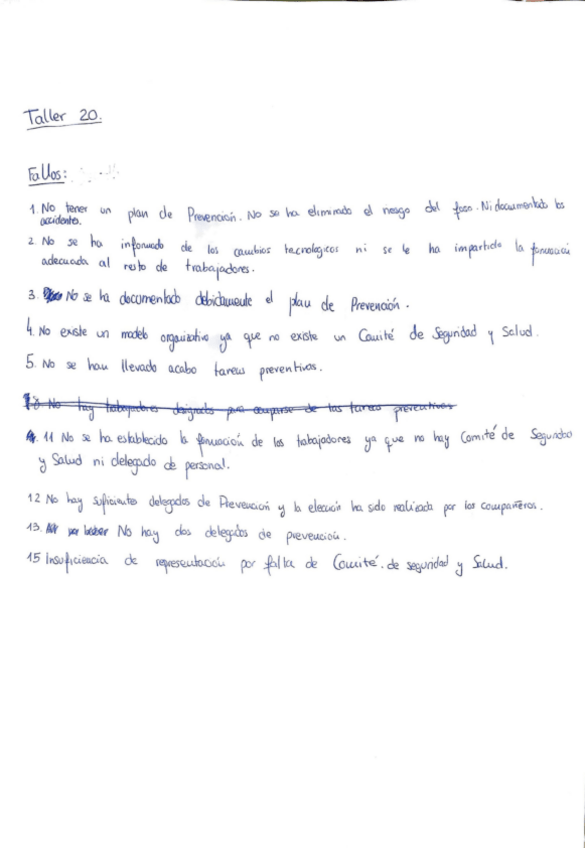 Taller 20.
Fallos:
1. No tener un plan de Prevención. No se ha eliminado el riesgo del foso. Ni documentado los
accidentes.
2. No se ha informado de los cambios tecnologicos ni se le ha impartido la formación
adecuada al resto de trabajadores.
3. No se ha documentado debidamente el plan de Prevención.
4. No existe un modelo organizativo ya que no existe un Comité de Seguridad y Salud.
5. No se han llevado acabo tareas preventivas.
No hay trabajadores designados para ocuparse de las tareas preventivas
11 No se ha establecido la formación de los trabajadores ya que no hay Comité de Seguridad
y Salud ni delegado de personal.
12 No hay suficientes delegados de Prevención y la elección ha sido realizada por los compañeros.
13. No hay dos delegados de prevención.
15 Insuficiencia de representación por falta de Comité. de seguridad y Salud.